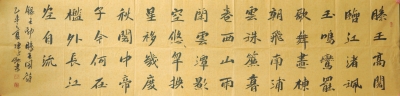 滕王高閣
臨江渚珮
玉鳴鸞罷
歌舞畫棟
朝飛南浦
雲珠簾暮
卷西山雨
閑雲潭影
日悠悠物換
星移幾度
秋閣中帝
子今何在
檻外長江
空自流
滕王閣詩